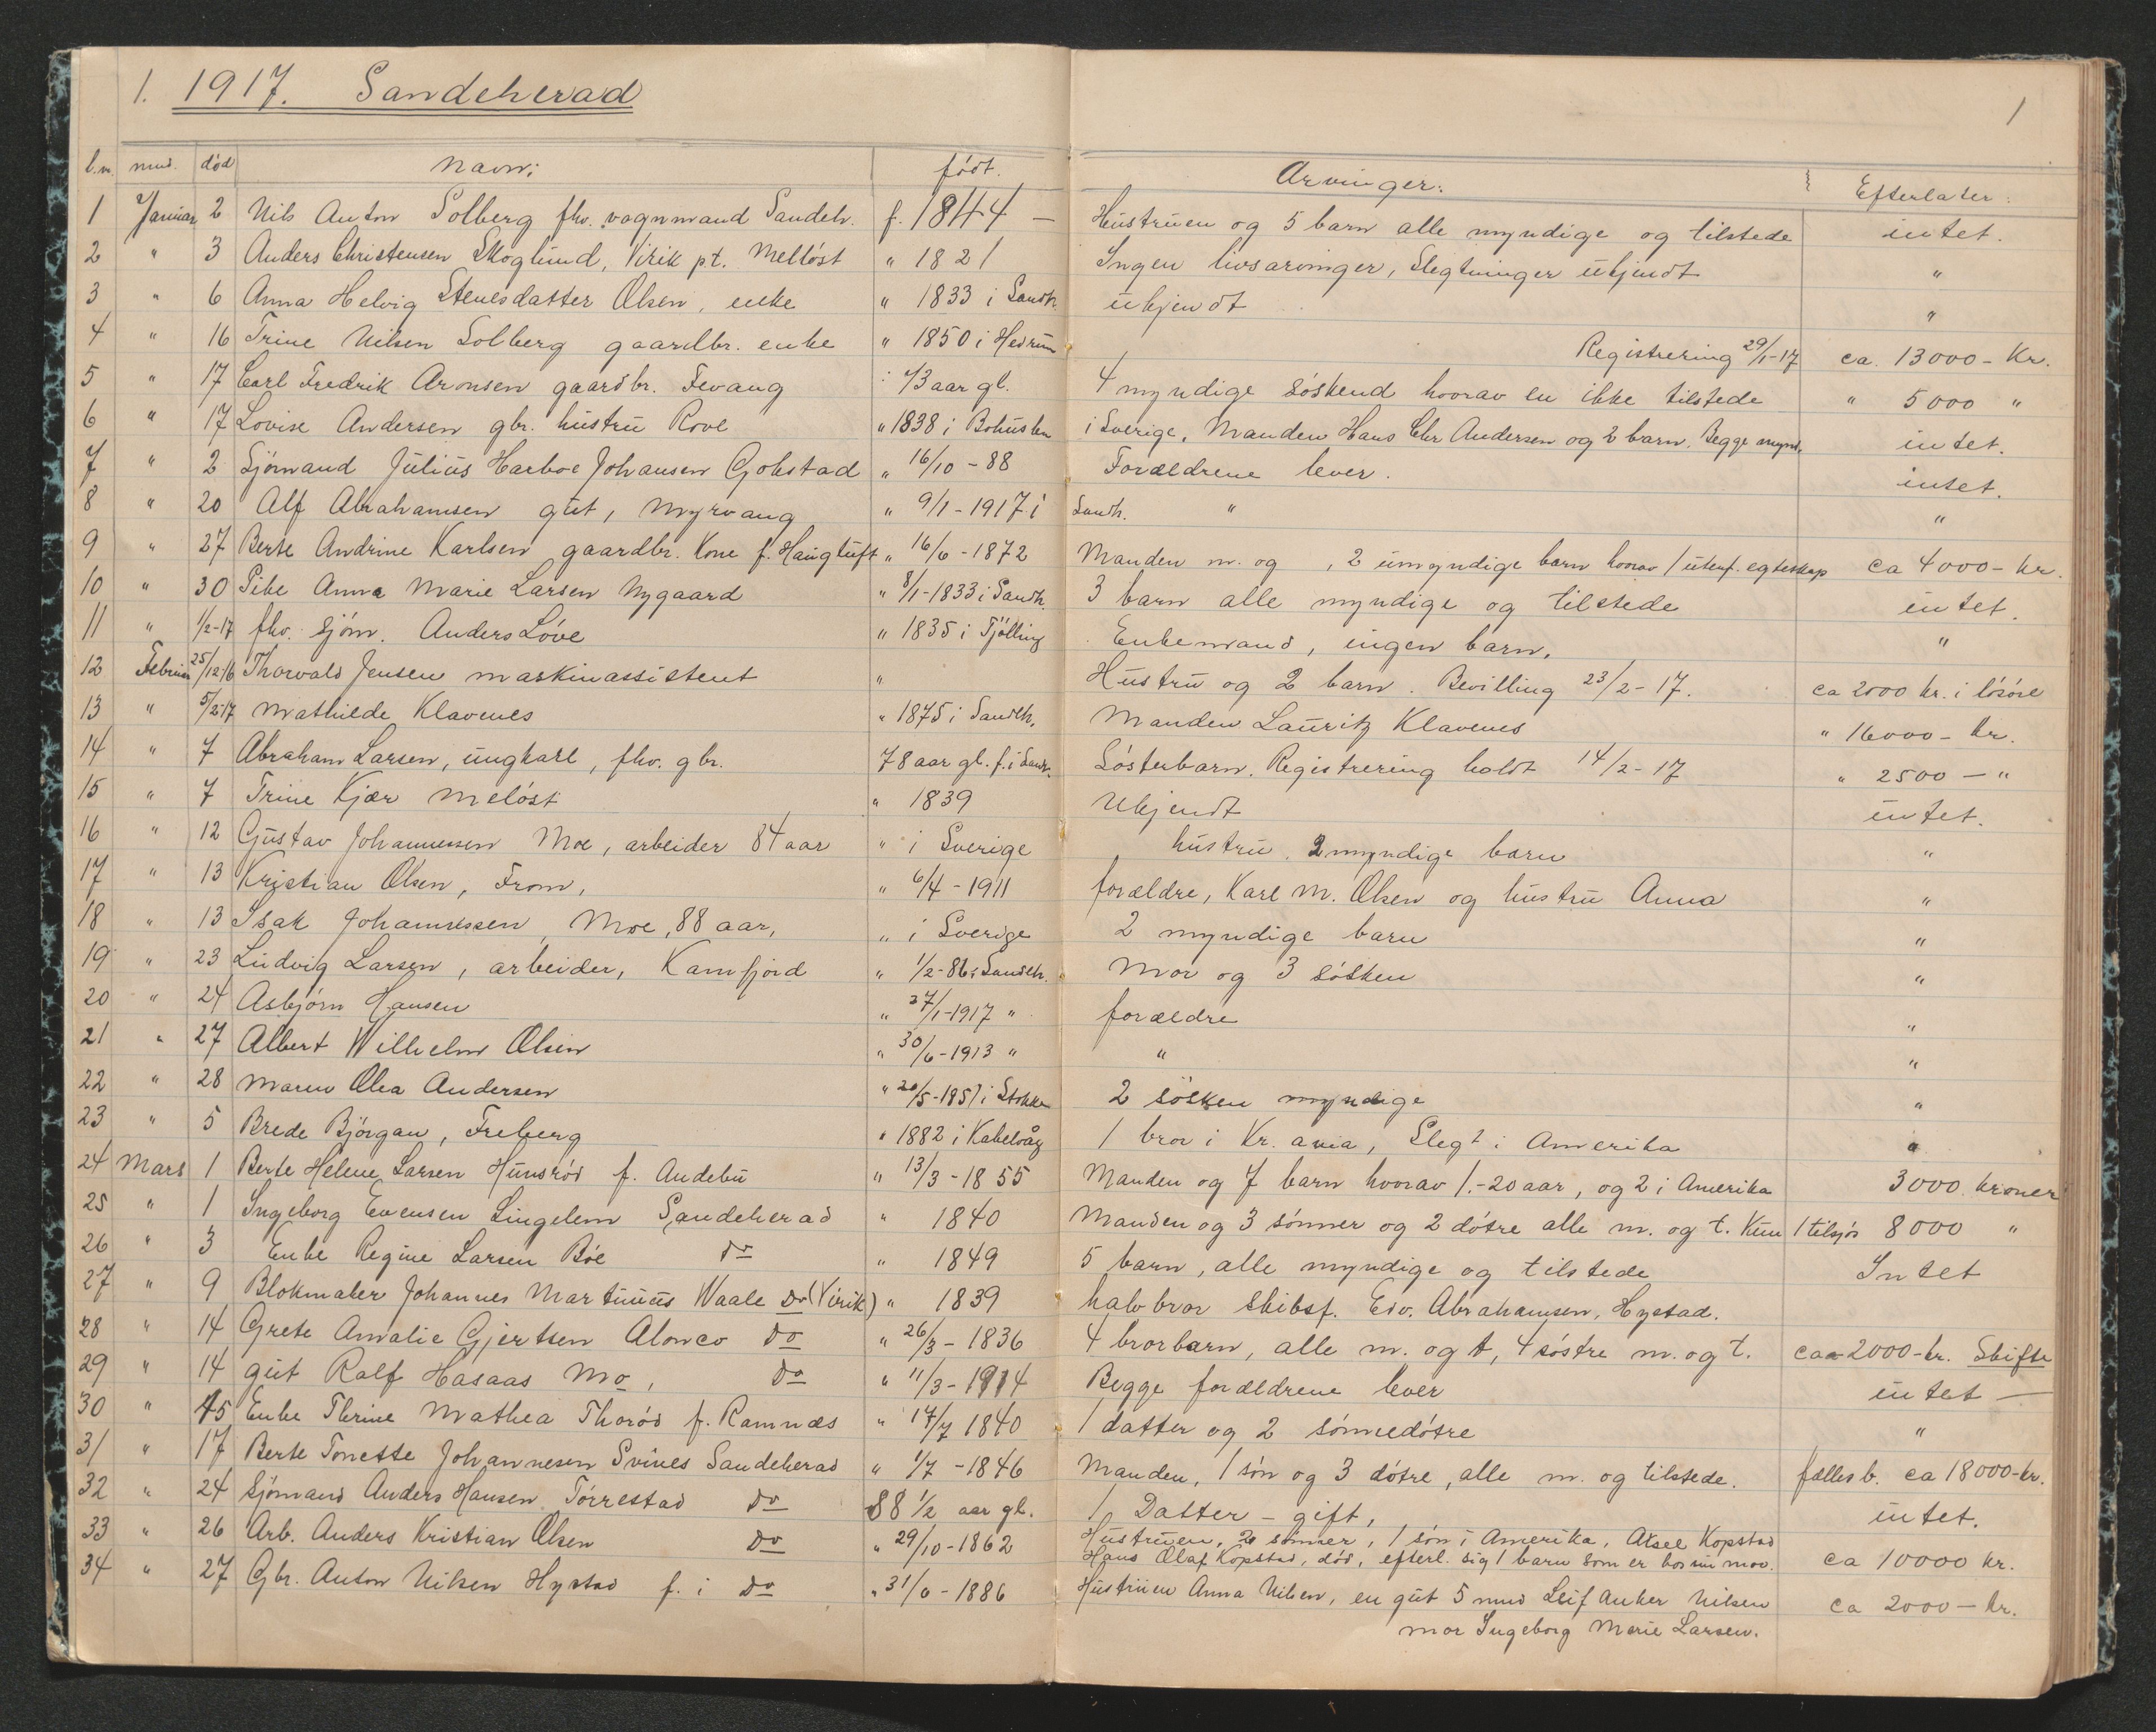 1. 1917. Sandeherad
1
l.n. mnd. død Navn: født. Arvinger: Efterlater:
1 Januar 2 Nils Anton Solberg fhv. vognmand Sandeh. f. 1844 — Hustruen og 5 barn alle myndige og tilstede intet.
2 " 3 Anders Christensen Skoglund, Virik pt. Melløst " 1821 Ingen livsarvinger, Slegtninger ukjendt "
3 " 6 Anna Helvig Stenesdatter Olsen, enke " 1833 i Sandh. ukjendt "
4 " 16 Trine Nilsen Solberg gaardbr. enke " 1850 i Hedrum Registrering 29/1-17 ca. 13000- Kr.
5 " 17 Carl Fredrik Aronsen gaardbr. Fevang : 43 aar gl. 4 myndige søskend hvorav en ikke tilstede " 5000 "
6 " 17 Lovise Andersen gbr. hustru Rove " 1838 i Bohuslen i Sverige, Manden Hans Chr Andersen og 2 barn. Begge mynd. intet.
7 " 2 Sjømand Julius Harboe Johansen Gokstad " 16/10-88 Forældrene lever. intet.
8 " 20 Alf Abrahamsen gut, Myrvang " 9/1-1917 i Sandh. " "
9 " 27 Berte Andrine Karlsen gaardbr. Kone f. Haugtuft " 16/6-1872 Manden m. og , 2 umyndige barn hvorav 1 utenf. egteskap ca 4000- kr.
10 " 30 Pike Anna Marie Larsen Nygaard " 8/1-1833 i Sandh. 3 barn alle myndige og tilstede intet.
11 " 1/2-17 fhv. sjøm. Anders Løve " 1835 i Tjølling Enkemand, ingen barn. "
12 Februar 25/12-16 Thorvald Jensen maskinassistent " Hustru og 2 barn. Bevilling 23/2-17. ca 2000 kr. i løsøre
13 " 5/2-17 Mathilde Klavenes " 1875 i Sandeh. Manden Lauritz Klavenes " 16000- kr.
14 " 7 Abraham Larsen, ungkarl, fhv. gbr. 78 aar gl. f. i Sandh. Søsterbarn. Registrering holdt 14/2-17 " 2500 — "
15 " 7 Trine Kjær Meløst " 1839 Ukjendt intet.
16 " 12 Gustav Johannessen Moe, arbeider 84 aar " i Sverige hustru, 2 myndige barn "
17 " 13 Kristian Olsen, From, " 6/4-1911 forældre, Karl M. Olsen og hustru Anna "
18 " 13 Isak Johannessen, Moe, 88 aar, " i Sverige 2 myndige barn "
19 " 23 Ludvig Larsen, arbeider, Kamfjord " 1/2-86 i Sandeh. Mor og 3 søsken "
20 " 24 Asbjørn Hansen " 27/1-1917 " forældre "
21 " 27 Albert Wilhelm Olsen " 30/6-1913 " " "
22 " 28 Maren Olea Andersen " 20/5-1857 i Stokke 2 søsken myndige "
23 " 5 Brede Bjørgan, Freberg " 1882 i Kabelvåg 1 bror i Kr. ania, Slegt i Amerika "
24 Mars 1 Berte Helene Larsen Hunsrød f. Andebu " 13/3-1855 Manden og 7 barn hvorav 1.-20 aar, og 2 i Amerika 3000 kroner
25 " 1 Ingeborg Evensen Lingelem Sandeherad " 1840 Manden og 3 sønner og 2 døtre alle m. og t. Kun 1 tilsjøs 8000 "
26 " 3 Enke Regine Larsen Bøe do " 1849 5 barn, alle myndige og tilstede Intet
27 " 9 Blokmaker Johannes Martinius Waale do (Virik) " 1839 halvbror Skibsf. Edv. Abrahamsen, Hystad.
28 " 14 Grete Amalie Gjertsen Alonco do " 26/3-1836 4 brorbarn, alle m. og t, 4 søstre m. og t. caa 2000-kr. Skifte
29 " 14 gut Ralf Hasaas Mo, do " 11/3-1914 Begge forældrene lever intet —
30 " 15 Enke Thrine Mathea Thorød f. Ramnæs " 17/7 1840 1 datter og 2 sønnedøtre "
31 " 17 Berte Tonette Johannesen Svines Sandeherad " 1/7-1846 Manden, 1 søn og 3 døtre, alle m. og tilstede. fælles b. ca 18000-kr.
32 " 24 Sjømand Anders Hansen Tørrestad do 88 1/2 aar gl. 1 Datter - gift, intet.
33 " 26 Arb. Anders Kristian Olsen do " 29/10-1862 Hustruen, 2 sønner, 1 søn i Amerika, Aksel Kopstad
Hans Olaf Kopstad, død, efterl. sig 1 barn som er hos sin mor. ca 10000 kr.
34 " 27 Gbr. Anton Nilsen Hystad f. i do " 31/6-1886 Hustruen Anna Nilsen, en gut 5 mnd Leif Anker Nilsen ca 2000 — kr.
mor Ingeborg Marie Larsen.